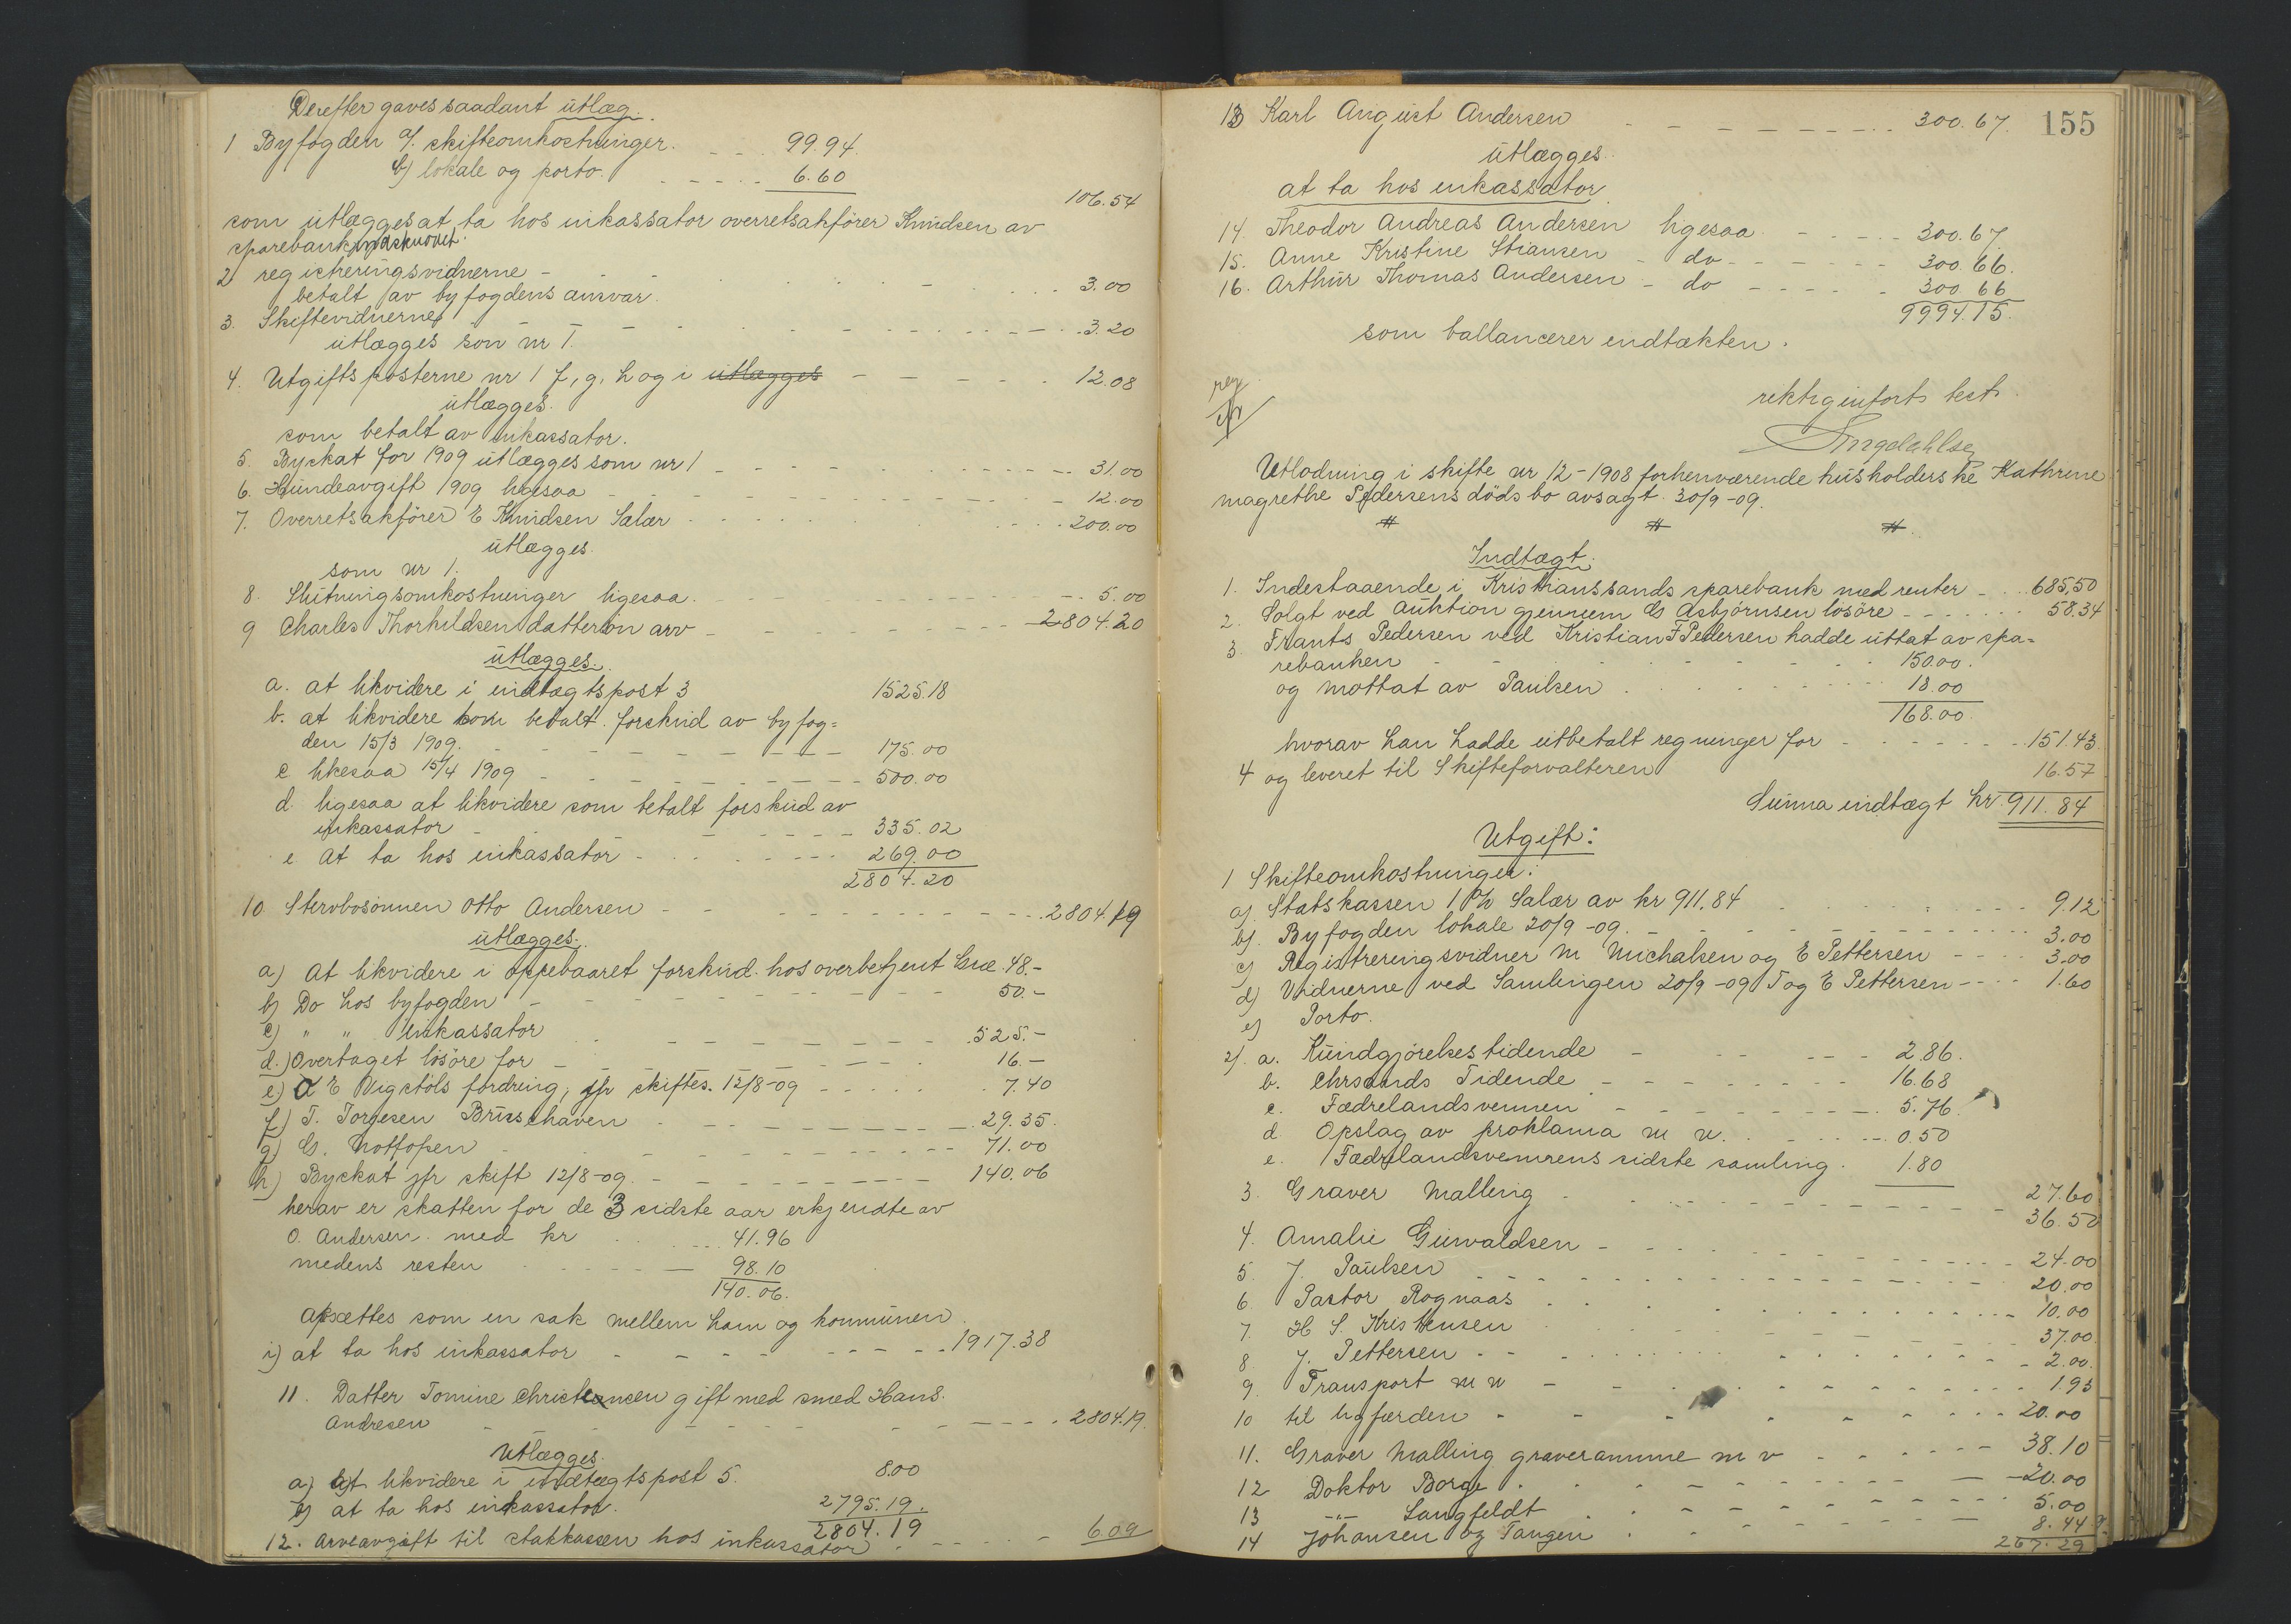 Derefter gaves saadant utlæg.
1 Byfogden a/. skifteomkostninger. - - - 99.94.
b) lokale og porto. - - - - - 6.60
106.54
som utlægges at ta hos inkassator overretsakförer Knudsen av
sparebankindskuddet.
2 registreringsvidnerne - - - - - 3.00
betalt av byfogdens ansvar.
3. Skiftevidnerne - - - - - 3.20
utlægges son nr 1.
4. Utgiftsposterne nr 1 f, g, h og i utlægges - - - - - 12.08
utlægges.
som betalt av inkassator.
5. Byskat for 1909 utlægges som nr 1 - - - - - 31.00
6. Hundeavgift 1909 ligesaa - - - - - 12.00
7. Overretsakförer E Knudsen Salær - - - - - 200.00
utlægges.
som nr 1.
8. Slutningsomkostninger ligesaa. - - - - - 5.00
9 Charles Thorkildsen dattersön arv - - - - - 2804.20
utlægges.
a. at likvidere i indtægtspost 3 1525.18
b. at likvidere som betalt. forskud av byfog=
den 15/3 1909. - - - - - 175.00
c likesaa 15/4 1909 - - - - - 500.00
d. ligesaa at likvidere som betalt forskud av
inkassator - - - - - 335.02
e at ta hos inkassator - - - - - 269.00
2804.20
10 Stervbosönnen Otto Andersen - - - - - 2804.19
utlægges.
a) At likvidere i oppebaaret forskud hos overbetjent Grœ. 48.-
b) Do hos byfogden - - - - - 50.-
c) " " Inkassator - - - - - 525.-
d.) Overtaget lösöre for - - - - - 16.-
e.) A E Vigstöls fordring, jfr skiftes. 12/8-09 - - - - 7.40
f) T. Torjesen Brusehaven - - - - - 29.35.
g) G. Nottopen - - - - - 71.00
h) Byskat jfr skift 12/8-09. - - - - - 140.06
herav er skatten for de 3 sidste aar erkjendte av
O. Andersen. med kr - - - 41.96
medens resten - - - - - 98.10
140.06.
avsættes som en sak mellem ham og kommunen.
i) at ta hos inkassator - - - - - 1917.38
11. Datter Tomine Christensen gift med smed Hans.
Andresen - - - - - 2804.19.
Utlægges.
a) at likvidere i indtægtspost 5. 8.00
b) at ta hos inkassator. 2795.19.
2804.19
12. Arveavgift til statkassen hos inkassator - - - - - 609
13 Karl August Andersen - - - - - 300.67. 155
utlægges.
at ta hos inkassator
14. Theodor Andreas Andersen ligesaa - - - - - 300.67.
15. Anne Kristine Stiansen - do - - - - - 300.66.
16. Arthur Thomas Andersen - do - - - - - 300.66
9994.15.
som ballancerer indtækten.
riktig infört test.
Utlodning i skifte nr 12-1908 forhenværende husholderske Kathrine
Magrethe Pedersens döds bo avsagt 30/9-09.
Indtægt.
1. Indestaaende i Kristianssands sparebank med renter - - 685,50
2. Solgt ved auktion gjennem G Asbjörnsen lösöre - - - - 58.34
3 Frants Pedersen ved Kristian F Pedersen hadde uttat av spa=
rebanken - - - - - 150.00.
og mottat av Paulsen - - - - - 18.00
168.00.
hvorav han hadde utbetalt regninger for - - - - - 151.43.
4 og leveret til Skifteforvalteren 16.57
Summa indtægt kr. 911.84
Utgift:
1 Skifteomkostninger:
a). Statskassen 1 % Salær av kr 911.84 - - - - - 9.12
b). Byfogden lokale 20/9-09. - - - - - 3.00
c) Registreringsvidner M Michalsen og E Pettersen - - - - 3.00
d) Vidnerne ved Samlingen 20/9-09 T og E Pettersen - - - - 1.60
e) Porto.
2). a. Kundgjörelsestidende - - - - - 2.86.
b. Chrsands Tidende - - - - - 16.68
c. Fædrelandsvennen - - - - - 5.76.
d Opslag av proklama m v. - - - - - 0.50
e. Fædrelandsvennens sidste samling. 1.80
27.60
3. Graver Malling - - - - - 36.50
4. Amalie Gunvaldsen - - - - - 24.00
5. J. Paulsen - - - - - 20.00
6. Pastor Rognaas - - - - - 10.00
7. H S. Kristensen - - - - - 37.00
8 J. Pettersen - - - - - 2.00.
9. Transport m v - - - - - 1.93
10 til ligferden - - - - - 20.00
11. Graver Malling graveramme m v - - - - - 38.10
12 Doktor Borge - - - - - 20.00
13 -"- Langfeldt - - - - - 5.00
14 Johansen og Tangen - - - - - 8.44
267.29